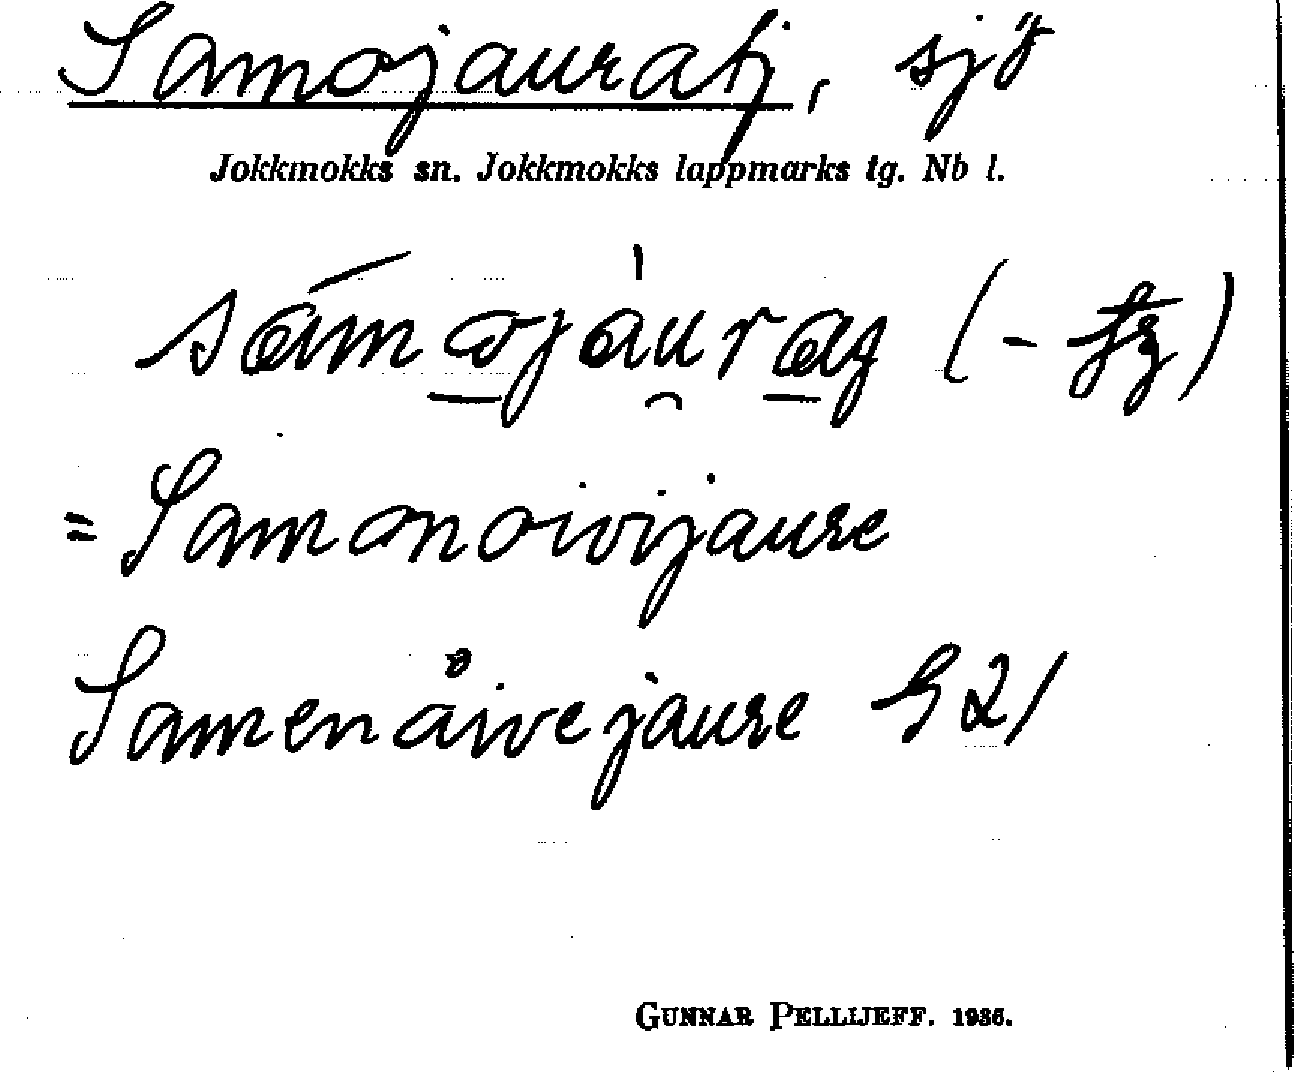 Samojauratj, sjö
Jokkmokks sn. Jokkmokks lappmarks tg. Nb l.
= Samonoivijaure
Samenåivejaure G 21
GUNNAR PELLIJEFF. 1936.